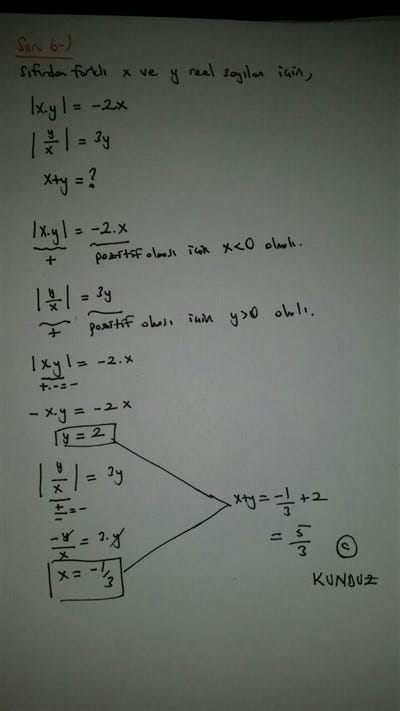 Soru 6-)
Sıfırdan farklı x ve y reel sayıları için,
|x.y| = -2x
|y/x| = 3y
x+y = ?
|x.y| = -2.x
+ pozitif olması için x<0 olmalı.
|y/x| = 3y
+ pozitif olması için y>0 olmalı.
|xy| = -2.x
+.-=-
-x.y = -2x
y = 2
|y/x| = 3y
+/- = -
-y/x = 3.y
x = -1/3
x+y = -1/3 + 2
= 5/3 C
KUNDUZ